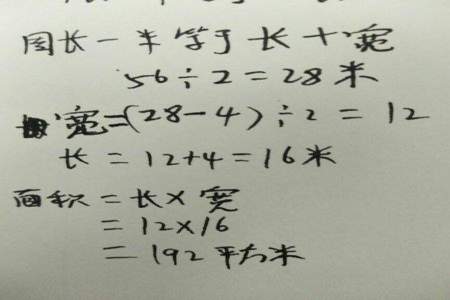 周长一半等于长+宽
56÷2=28米
宽=(28-4)÷2=12
长=12+4=16米
面积=长×宽
=12×16
=192平方米